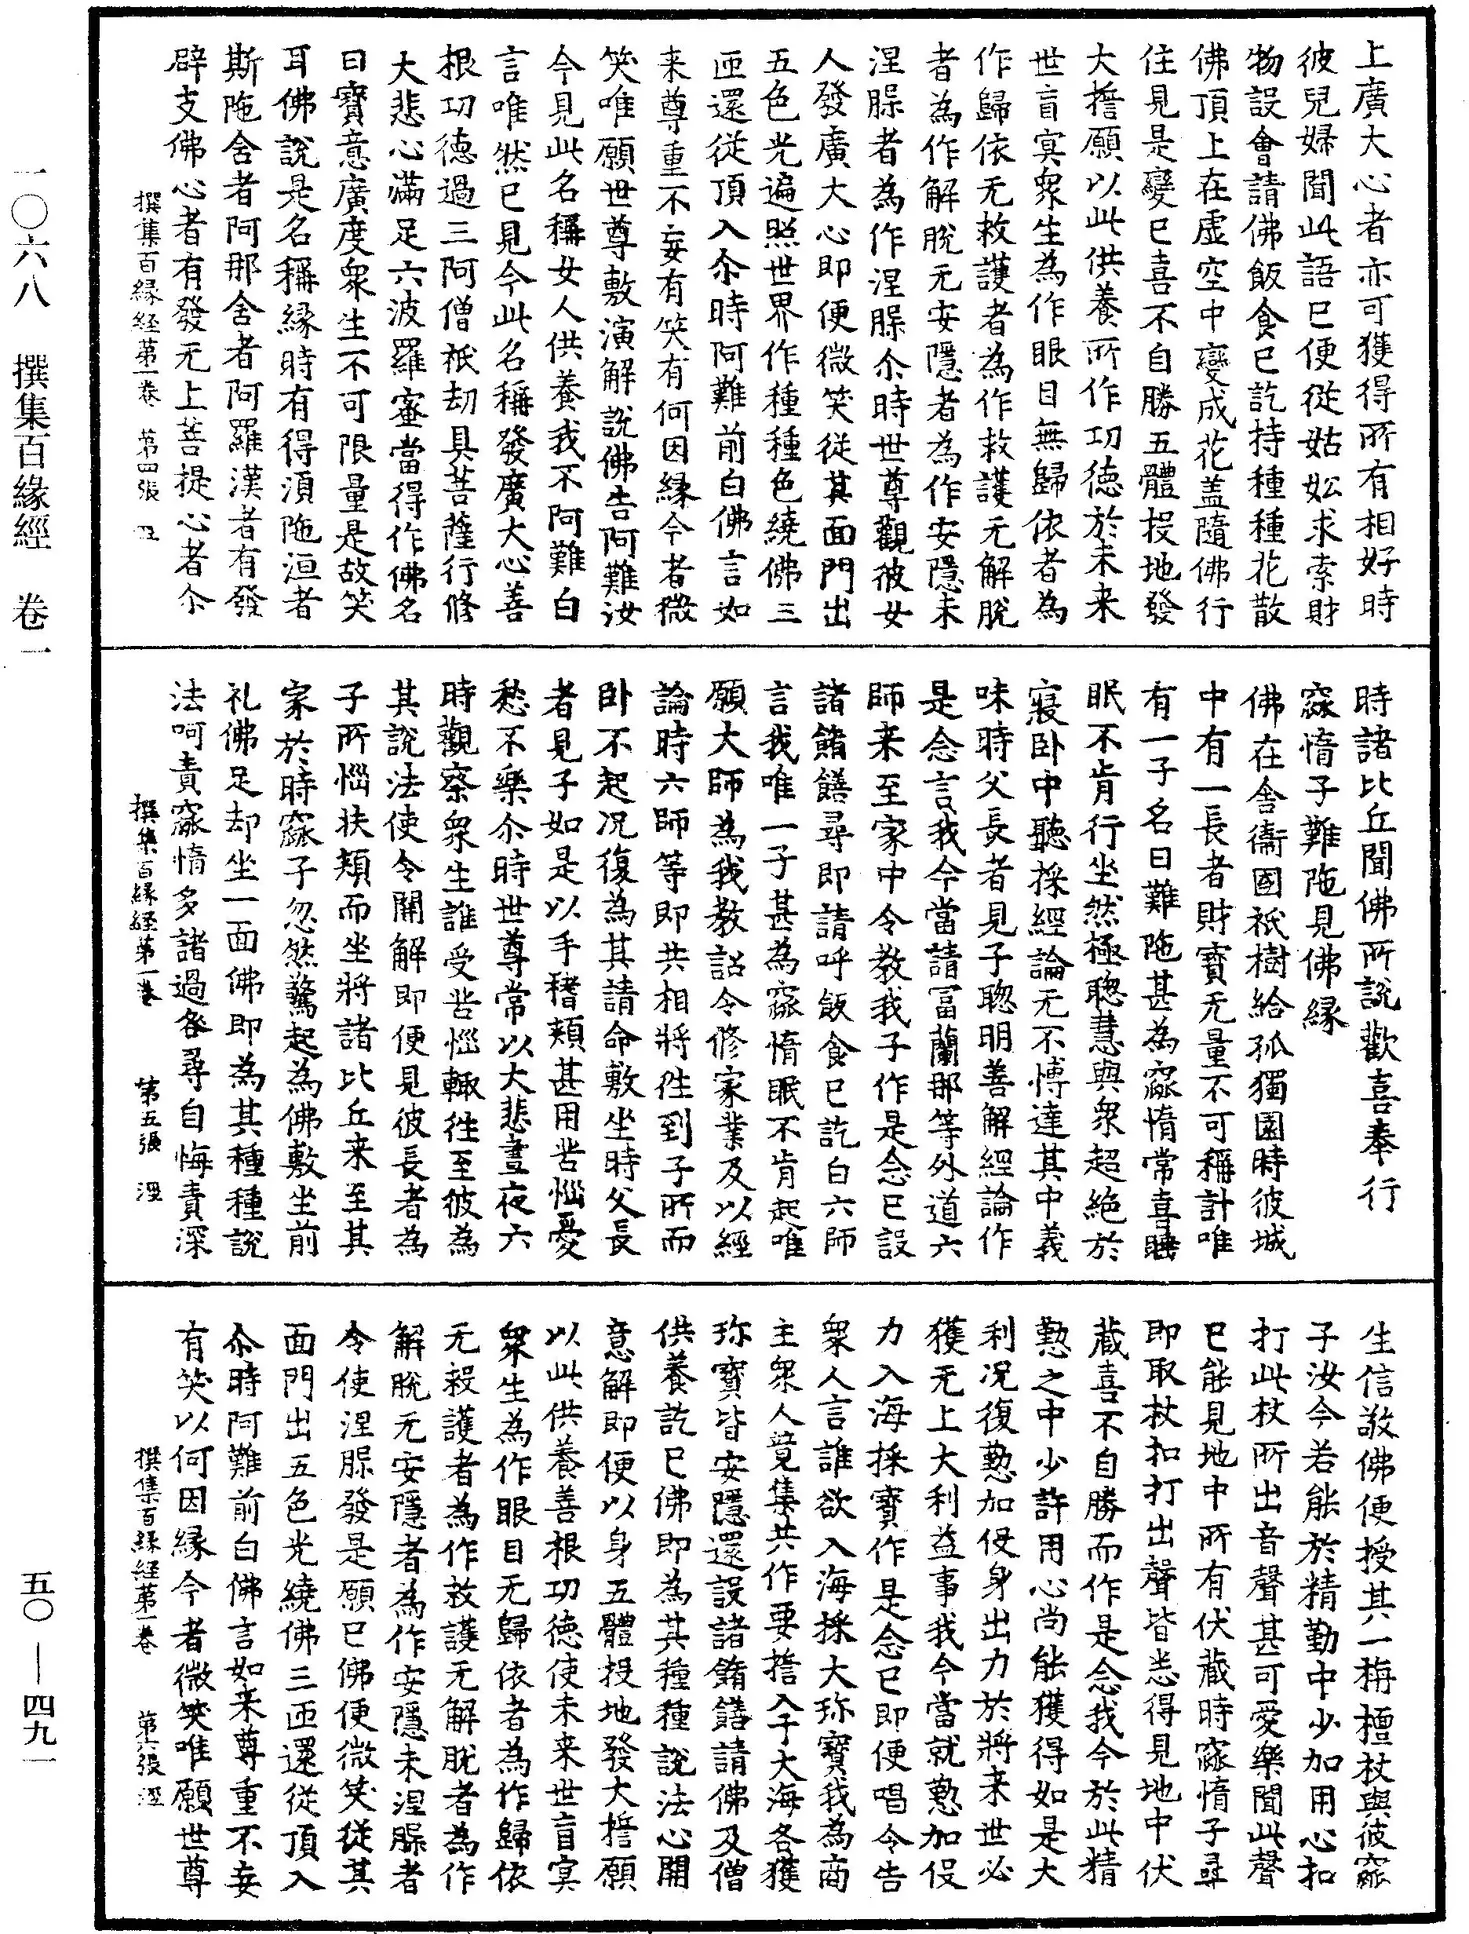 上廣大心者亦可獲得所有相好時
彼兒婦聞此語已便從姑妐求索財
物設會請佛飯食已訖持種種花散
佛頂上在虛空中變成花盖隨佛行
住見是變已喜不自勝五體投地發
大擔願以此供養所作功德於未来
世盲冥衆生為作眼目無歸依者為
作歸依无救護者為作救護无解脫
者為作解脫无安隱者為作安隱未
涅槃者為作涅槃尒時世尊觀彼女
人發廣大心即便微笑從其面門出
五色光遍照世界作種種色繞佛三
迊還從頂入尒時阿難前白佛言如
来尊重不妄有笑有何因緣今者微
笑唯願世尊敷演解說佛告阿難汝
今見此名稱女人供養我不阿難白
言唯然已見今此名稱發廣大心善
根功德過三阿僧祇劫具菩薩行修
大悲心滿足六波羅蜜當得作佛名
曰寶意廣度衆生不可限量是故笑
耳佛說是名稱緣時有得湏陁洹者
斯陁含者阿那含者阿羅漢者有發
辟支佛心者有發无上菩提心者尒
撰集百緣經第一卷 第四張
時諸比丘聞佛所說歡喜奉行
窳惰子難陁見佛緣
佛在舍衛國祇樹給孤獨園時彼城
中有一長者財寶无量不可稱計唯
有一子名曰難陁甚為窳惰常喜睡
眠不肯行坐然極聰慧與衆超絕於
寢卧中聽採經論无不愽達其中義
味時父長者見子聰明善解經論作
是念言我今當請冨蘭那等外道六
師来至家中令教我子作是念已設
諸餚饍尋即請呼飯食已訖白六師
言我唯一子甚為窳惰眠不肯起唯
願大師為我教詔令修家業及以經
論時六師等即共相將往到子所而
卧不起况復為其請命敷坐時父長
者見子如是以手搘頰甚用苦惱憂
愁不樂尒時世尊常以大悲晝夜六
時觀察衆生誰受苦惱輙往至彼為
其說法使令開解即便見彼長者為
子所惱扶頰而坐將諸比丘来至其
家於時窳子忽然驚起為佛敷坐前
礼佛足却坐一面佛即為其種種說
法呵責窳惰多諸過咎尋自悔責深
撰集百緣經第一卷 第五張 涇
生信敬佛便授其一栴檀杖與彼窳
子汝今若能於精勤中少加用心扣
打此杖所出音聲甚可愛樂聞此聲
已能見地中所有伏藏時窳惰子尋
即取杖扣打出聲皆悉得見地中伏
藏喜不自勝而作是念我今於此精
懃之中少許用心尚能獲得如是大
利况復懃加役身出力於將来世必
獲无上大利益事我今當就懃加役
力入海採寶作是念已即便唱令告
衆人言誰欲入海採大珎寶我為商
主衆人競集共作要擔入于大海各獲
珎寶皆安隱還設諸餚饍請佛及僧
供養訖已佛即為其種種說法心開
意解即便以身五體投地發大擔願
以此供養善根功德使未来世盲冥
衆生為作眼目无歸依者為作歸依
无救護者為作救護无解脫者為作
解脫无安隱者為作安隱未涅槃者
令使涅槃發是願已佛便微笑從其
面門出五色光繞佛三迊還從頂入
尒時阿難前白佛言如来尊重不妄
有笑以何因緣今者微笑唯願世尊
撰集百緣經第一卷 第六張 涇
一〇六八 撰集百緣經 卷一
五〇——四九一